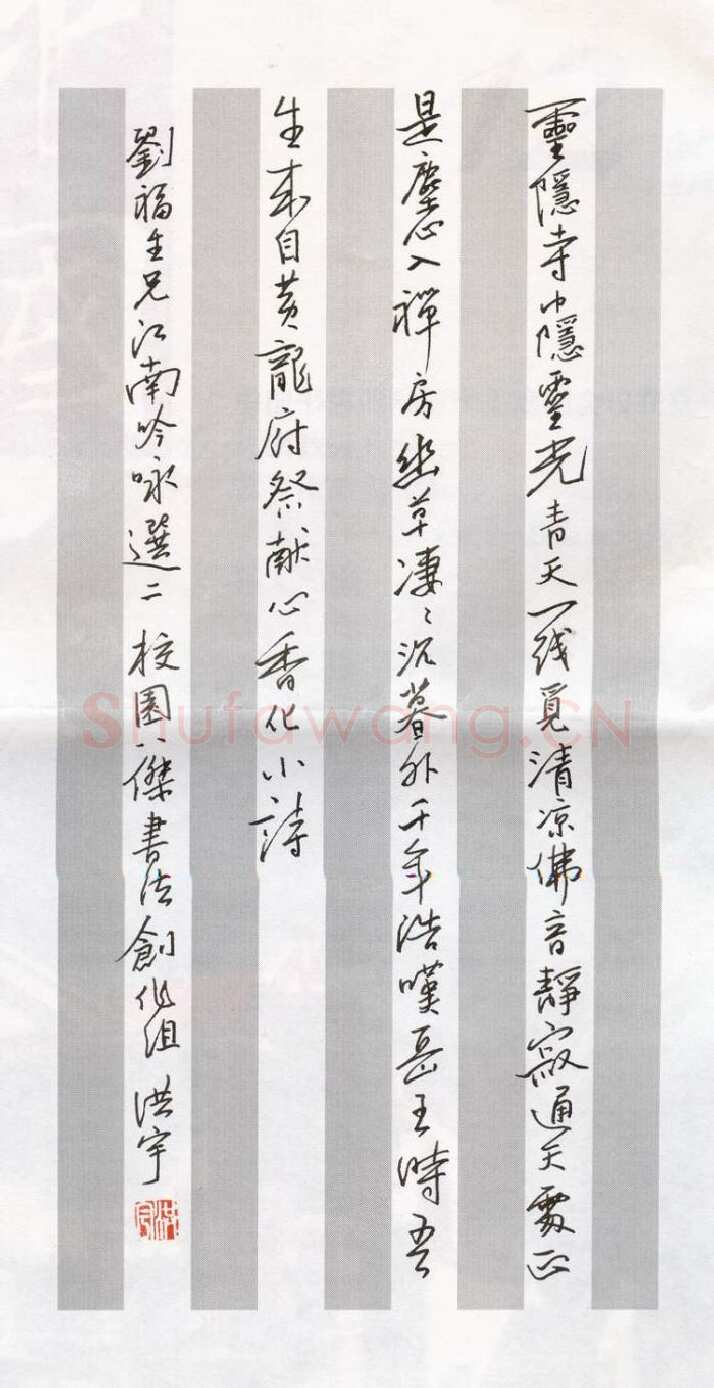 靈隱寺中隱靈光青天一线覓清凉佛音靜寂通天處正
是塵心入禪房幽草凄〻沉暮外千年浩嘆岳王時吾
生来自黄龍府祭献心香化小詩
劉福生兄江南吟咏選二 校園八傑書法創作組 洪宇
Shufawang.CN